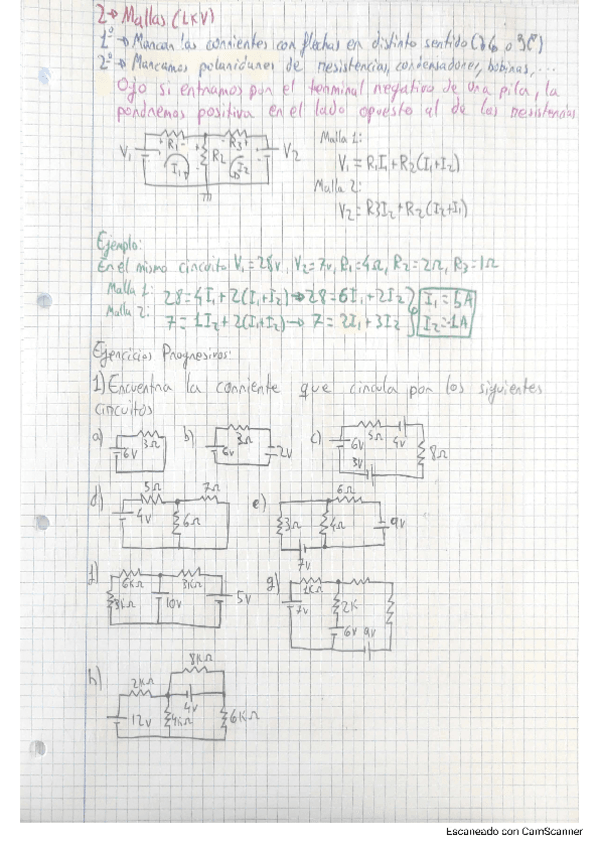 2→ Mallas (LKV)
1º→ Marcan las corrientes con flechas en distinto sentido (26 o 3C)
2º→ Marcamos polaridades de resistencias, condensadores, bobinas, ...
Ojo si entramos por el terminal negativo de una pila, la
pondremos positiva en el lado opuesto al de las resistencias
R1 R3
V1 I1 R2 I2 V2
Malla 1:
V1 = R1I1+R2(I1+I2)
Malla 2:
V2 = R3I2+R2(I2+I1)
Ejemplo:
En el mismo circuito V1=28v, V2=7v, R1=4Ω, R2=2Ω, R3=1Ω
Malla 1: 28=4I1+2(I1+I2)→28=6I1+2I2 I1=5A
Malla 2: 7=1I2+2(I1+I2)→ 7=2I1+3I2 I2=-1A
Ejercicios Progresivos:
1) Encuentra la corriente que circula por los siguientes
circuitos
a) 3Ω 6V
b) 3Ω 6v 2v
c) 5Ω 4v 6V 3V 8Ω
d) 5Ω 7Ω 4v 6Ω
e) 6Ω 3Ω 4Ω 9v 7v
f) 6KΩ 3KΩ 3KΩ 10v 5v
g) 1KΩ 7v 2K 6v 9v
h) 8KΩ 2KΩ 4v 12v 4KΩ 6KΩ
Escaneado con CamScanner